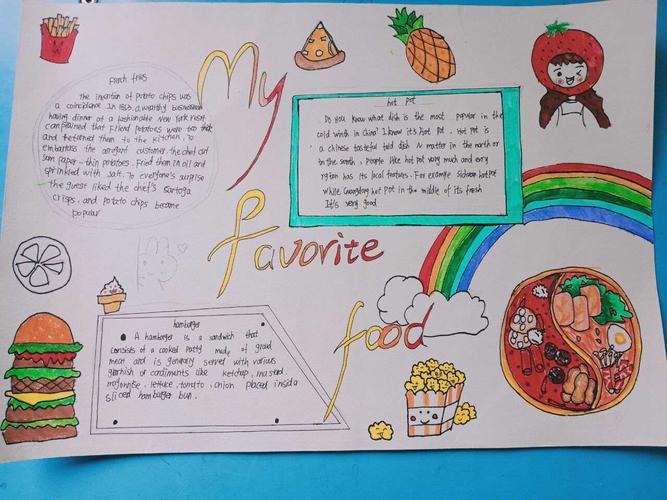 My
favorite
food
French fries
The invention of potato chips was
a coincidence In 1853. a wealthy businessman
having dinner at a fashionable New York
complained that Fried potatoes were too thick
and returned them to the kitchen, To
embarrass the arrogant customer. the chef cut
som paper-thin potatoes. Fried them in oil and
sprinkled with salt. To everyone's surprise
the guest liked the chef's Sartoga
crisps, and potato chips became
popular
hot pot
Do you know what dish is the most popular in the
cold winth in China? I know it's hot pot. Hot pot is
a Chinese tasteful fold dish matter in the north or
in the south, people like hot pot very much and evry
rigion has its local features. For example Sichuan hot pot
while Guangdong hot pot in the middle of its fresh
It's very good
hamburger
A hamburger is a sandwich that
consists of a cooked patty of
meat and is generaly served with various
of condiments like ketchup, mustard,
lettuce, tomato, onion placed inside
sliced hamburger bun.